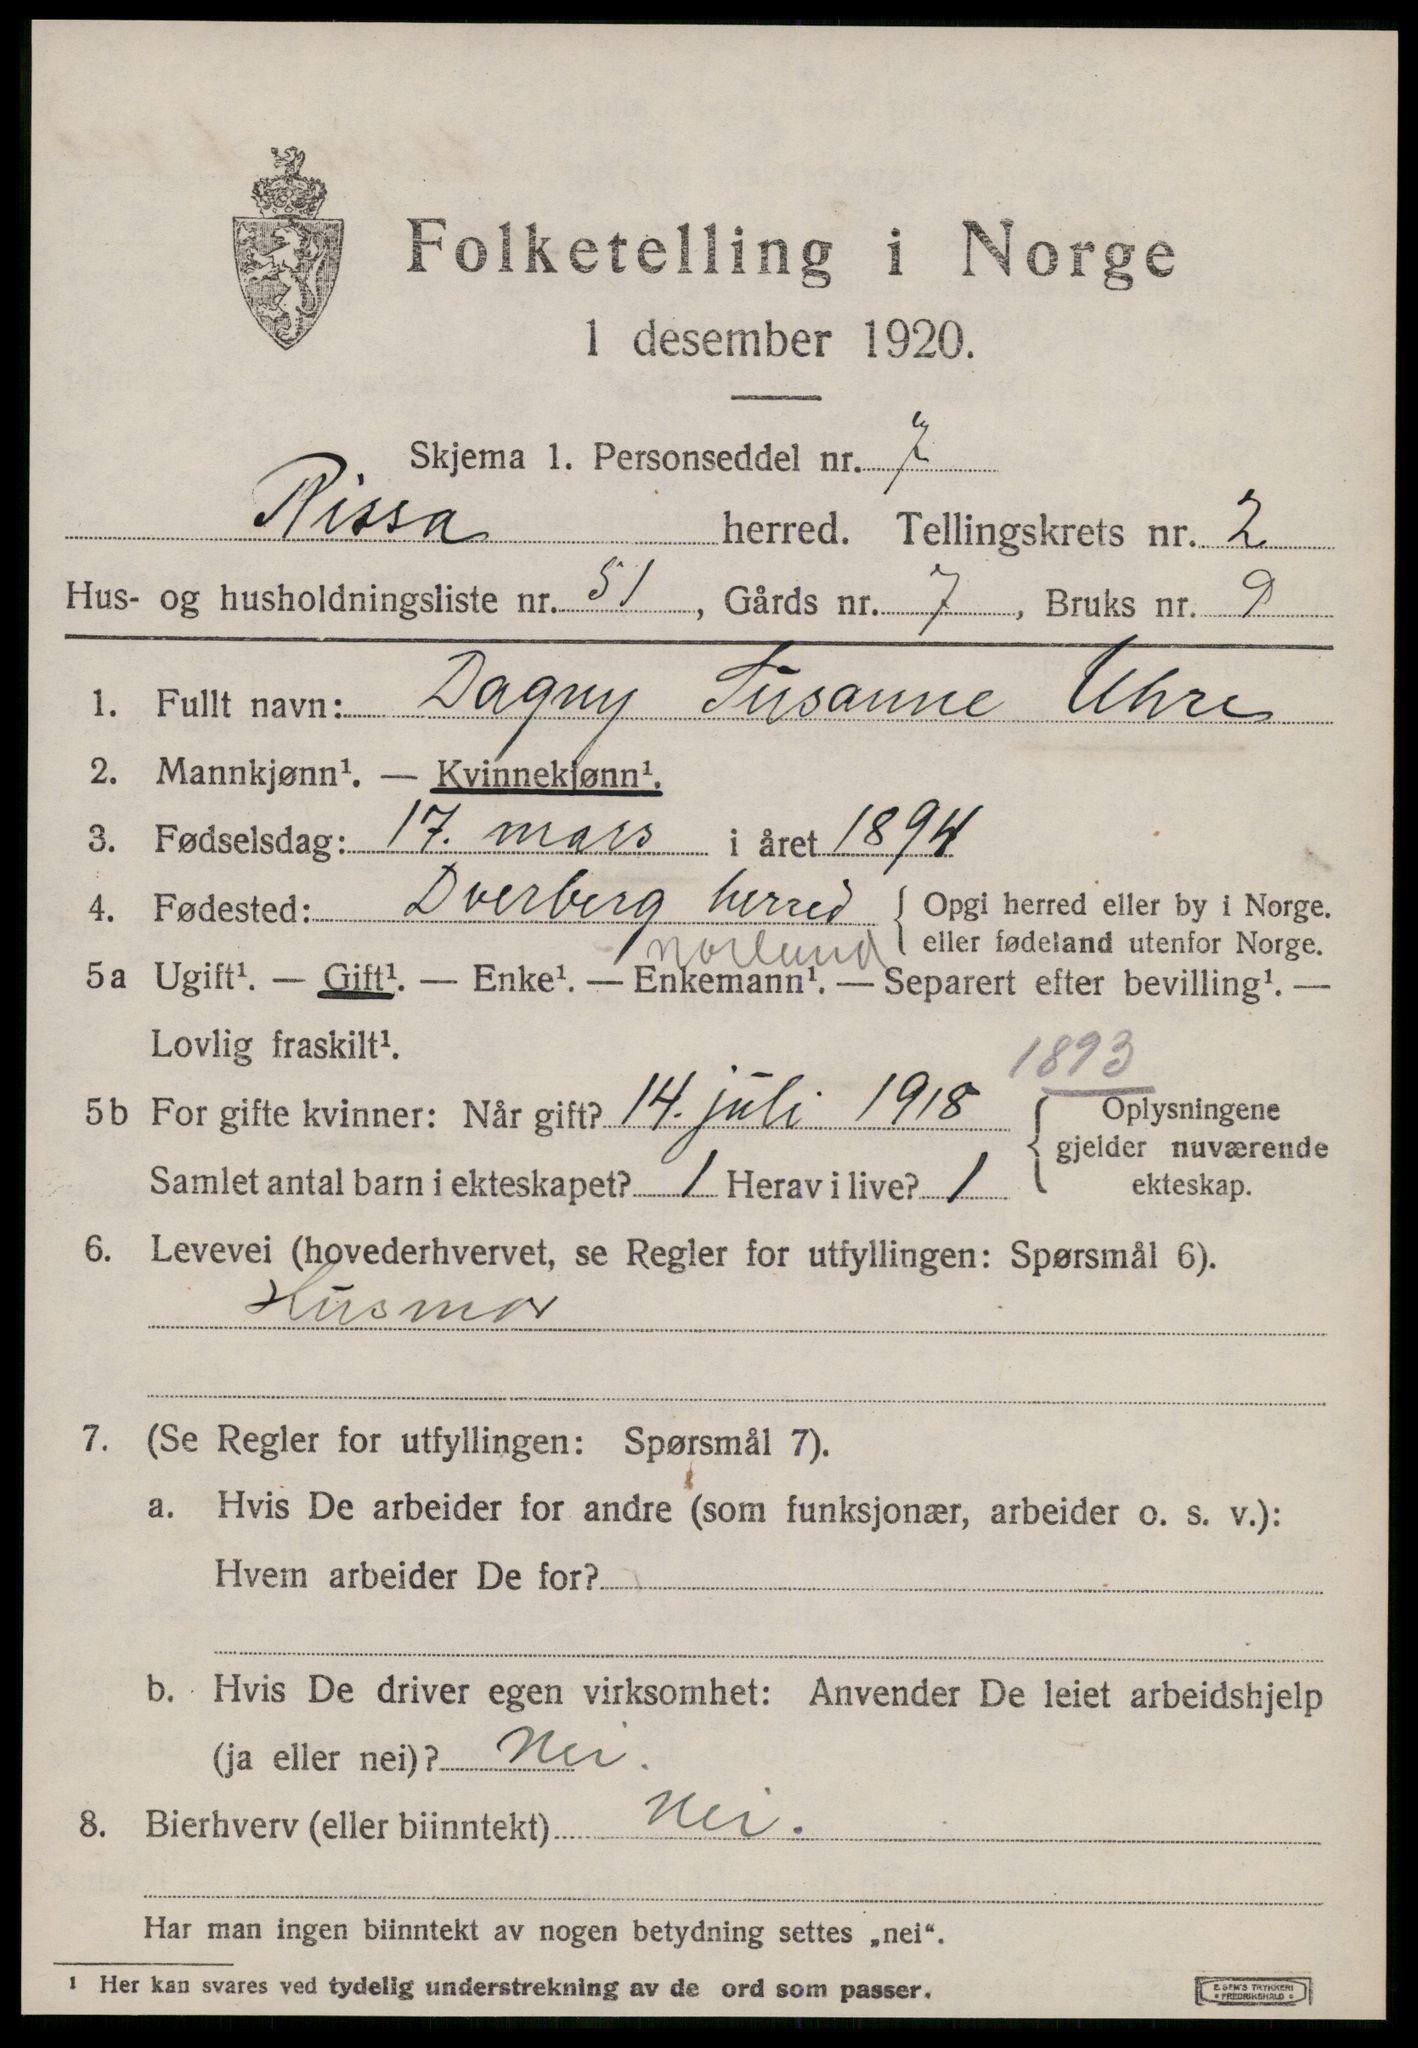 Folketelling i Norge
1 desember 1920.
Skjema 1. Personseddel nr. 7
Rissa herred. Tellingskrets nr. 2
Hus- og husholdningsliste nr. 51, Gårds nr. 7, Bruks nr. 9
1. Fullt navn: Dagny Susanne Uhre
2. Mannkjønn¹. — Kvinnekjønn¹.
3. Fødselsdag: 17. mars i året 1894
4. Fødested: Dverberg herred { Opgi herred eller by i Norge.
eller fødeland utenfor Norge.
Norland
5a Ugift¹. — Gift¹. — Enke¹. — Enkemann¹. — Separert efter bevilling¹. —
Lovlig fraskilt¹.
1893
5b For gifte kvinner: Når gift? 14. juli 1918 { Oplysningene
gjelder nuværende
Samlet antal barn i ekteskapet? 1 Herav i live? 1 ekteskap.
6. Levevei (hovederhvervet, se Regler for utfyllingen: Spørsmål 6).
Husmor
7. (Se Regler for utfyllingen: Spørsmål 7).
a. Hvis De arbeider for andre (som funksjonær, arbeider o. s. v.):
Hvem arbeider De for?
b. Hvis De driver egen virksomhet: Anvender De leiet arbeidshjelp
(ja eller nei)? Nei.
8. Bierhverv (eller biinntekt) Nei.
Har man ingen biinntekt av nogen betydning settes „nei“.
¹ Her kan svares ved tydelig understrekning av de ord som passer.
E. SEM'S TRYKKERI
• FREDRIKSHALD •